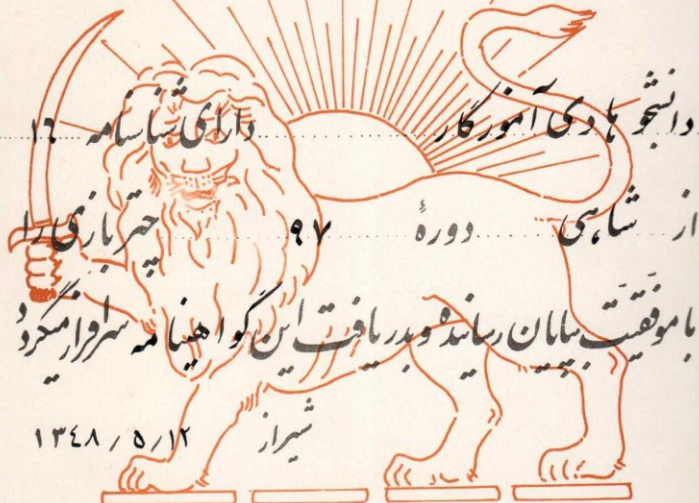 دانشجو هادی آموزگار دارای شناسنامه ۱۶
از شاهی دورهٔ ۹۷ چتربازی را
با موفقیت بپایان رسانده و بدریافت این گواهینامه سرافراز میگردد
شیراز ۱۳۴۸/۵/۱۲